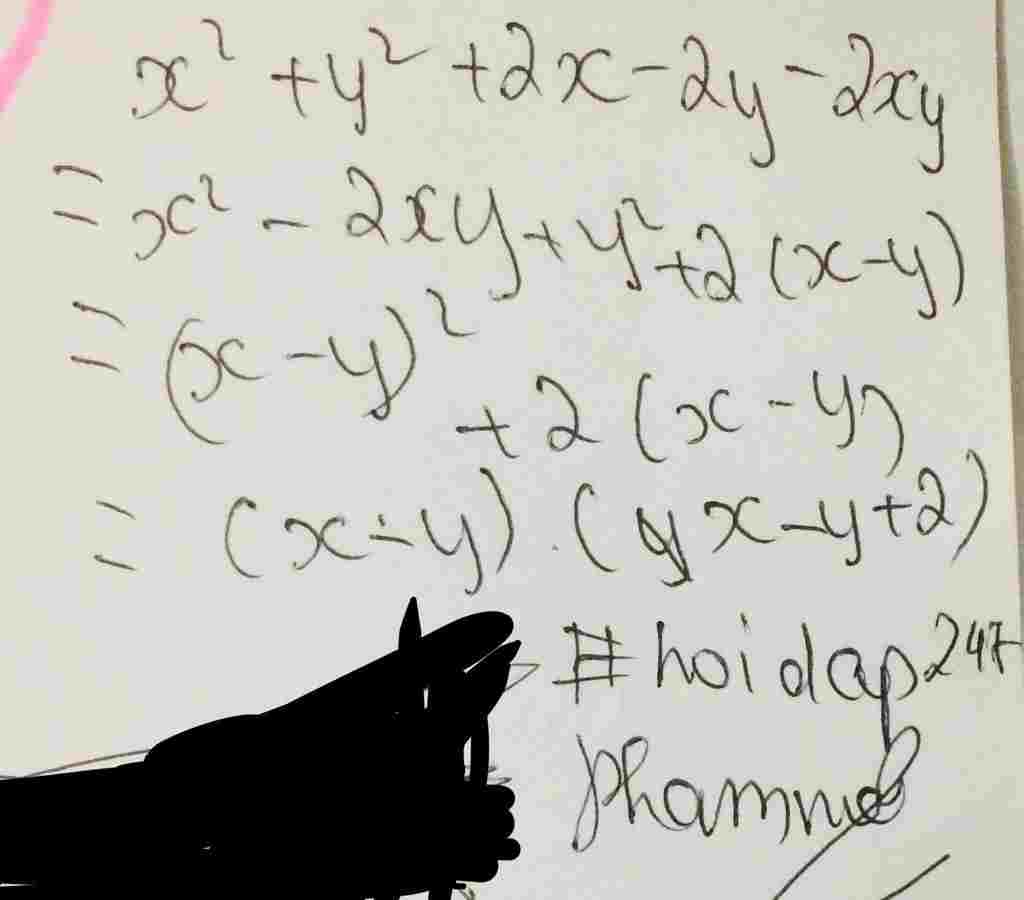 x² + y² + 2x - 2y - 2xy
= x² - 2xy + y² + 2 (x-y)
= (x - y)² + 2 (x - y)
= (x - y) . (x - y + 2)
#hoidap247